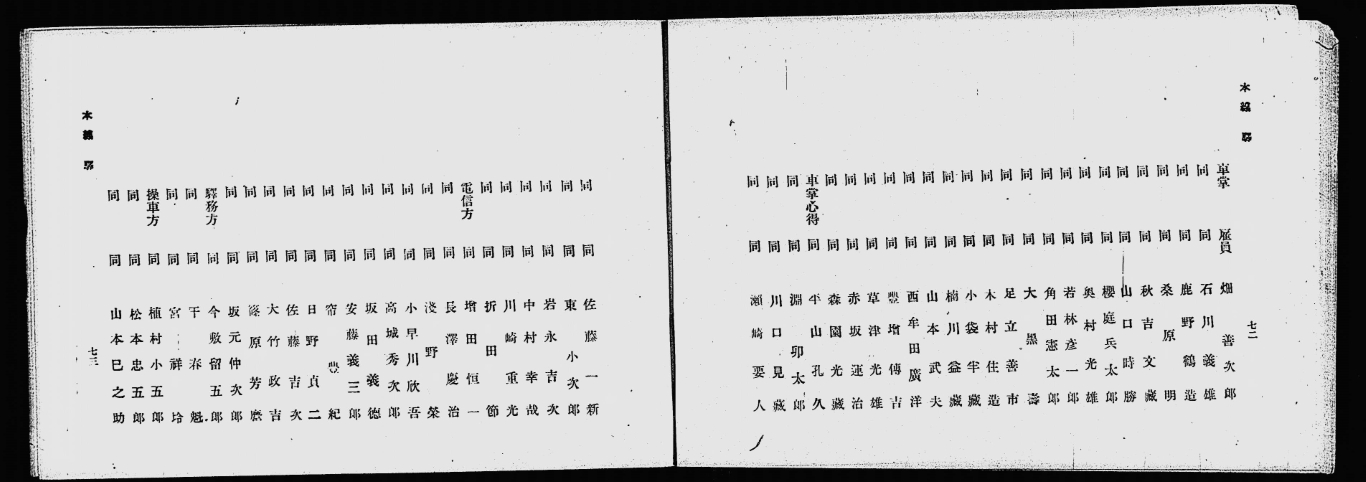 七二
車掌 雇員 畑善次郎
同 同 石川義雄
同 同 鹿野鶴造
同 同 桑原明
同 同 秋吉文藏
同 同 山口時勝
同 同 櫻庭兵太郎
同 同 奥村光雄
同 同 若林彦一郎
同 同 角田憲太郎
同 同 大黒壽
同 同 足立善市
同 同 木村住造
同 同 小袋牢藏
同 同 楠川益藏
同 同 山本武夫
同 同 西牟田廣洋
同 同 豊増傳吉
同 同 草津光雄
同 同 赤坂運治
同 同 森園光藏
車掌心得 同 平山孔久
同 同 淵卯太郎
同 同 川口見藏
同 同 瀬崎要人
同 同 佐藤一新
同 同 東小次郎
同 同 岩永吉次
同 同 中村幸哉
同 同 川崎重光
同 同 折田節
電信方 同 增田恒一
同 同 長澤慶治
同 同 淺野榮
同 同 小早川欣吾
同 同 高城秀次郎
同 同 坂田義德
同 同 安藤義三郎
同 同 帘豊紀
同 同 日野貞二
同 同 佐藤吉次
同 同 大竹政吉
同 同 原芳麿
同 同 坂元仲次郎
驛務方 同 今敷留五郎
同 同 于春魁
同 同 宮祥
操車方 同 植村小五郎
同 同 松本忠五郎
同 同 山本巳之助
七三